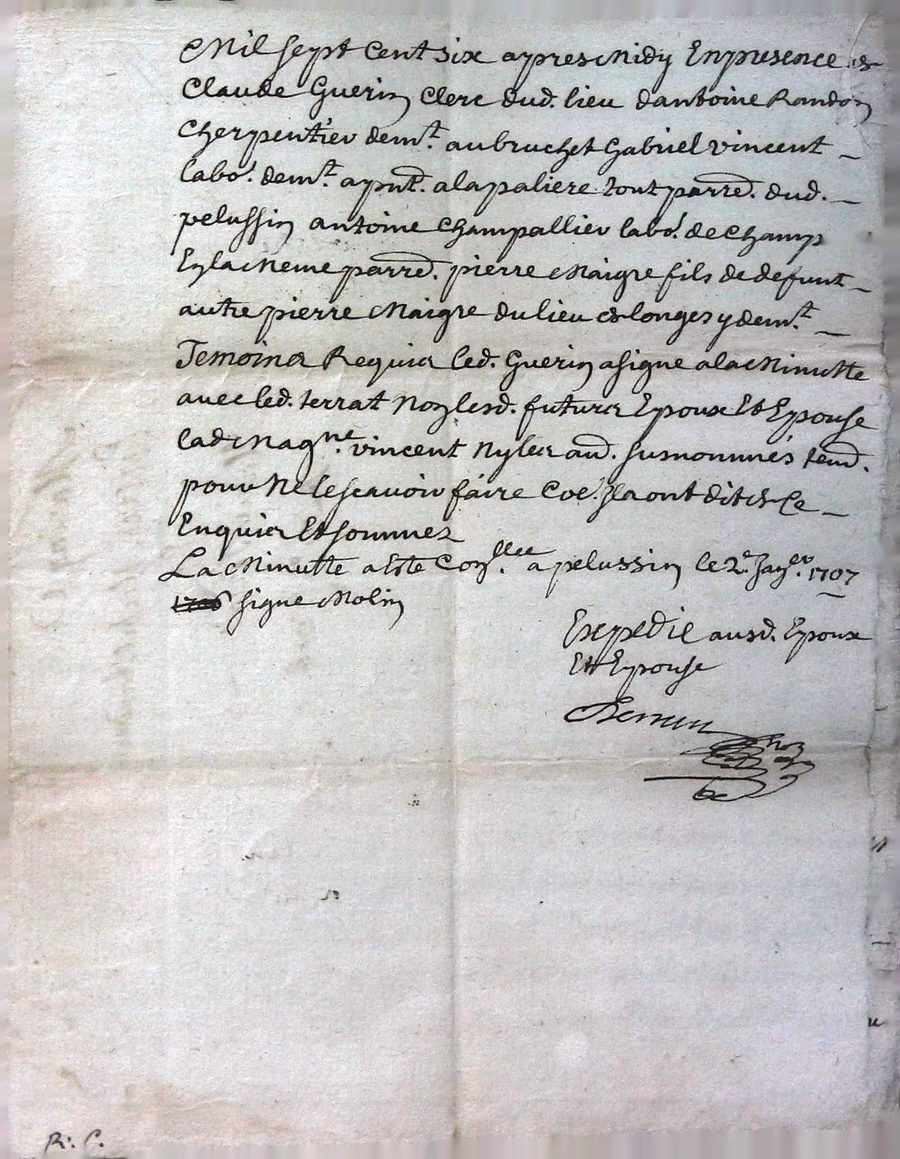 Mil sept Cent six apres Midy En presence de
Claude Guerin Clerc dud. lieu dantoine Randon
Cherpentier demt. au bruchet Gabriel vincent
labo.r demt. apnt. a la paliere tout parred. dud.
pelussin antoine Champallier labo.r de Champ
En la Meme parred. pierre Maigre fils de defunt
autre pierre Maigre du lieu de longes y demt.
Temoins Requis led. Guerin a signe a la Minutte
avec led. terrat Non lesd. futurs Epoux Et Epouse
lad Magne. vincent Ny les au.d. susnommés tem.
pour Ne le scavoir faire Co.e Ils ont dit de Ce
Enquis Et sommez
La Minutte a Este Con.llee a pelussin le 2.e Jan.er 1707
1706 signe Molin
Expedie ausd. Epoux
Et Epouse
R. C.